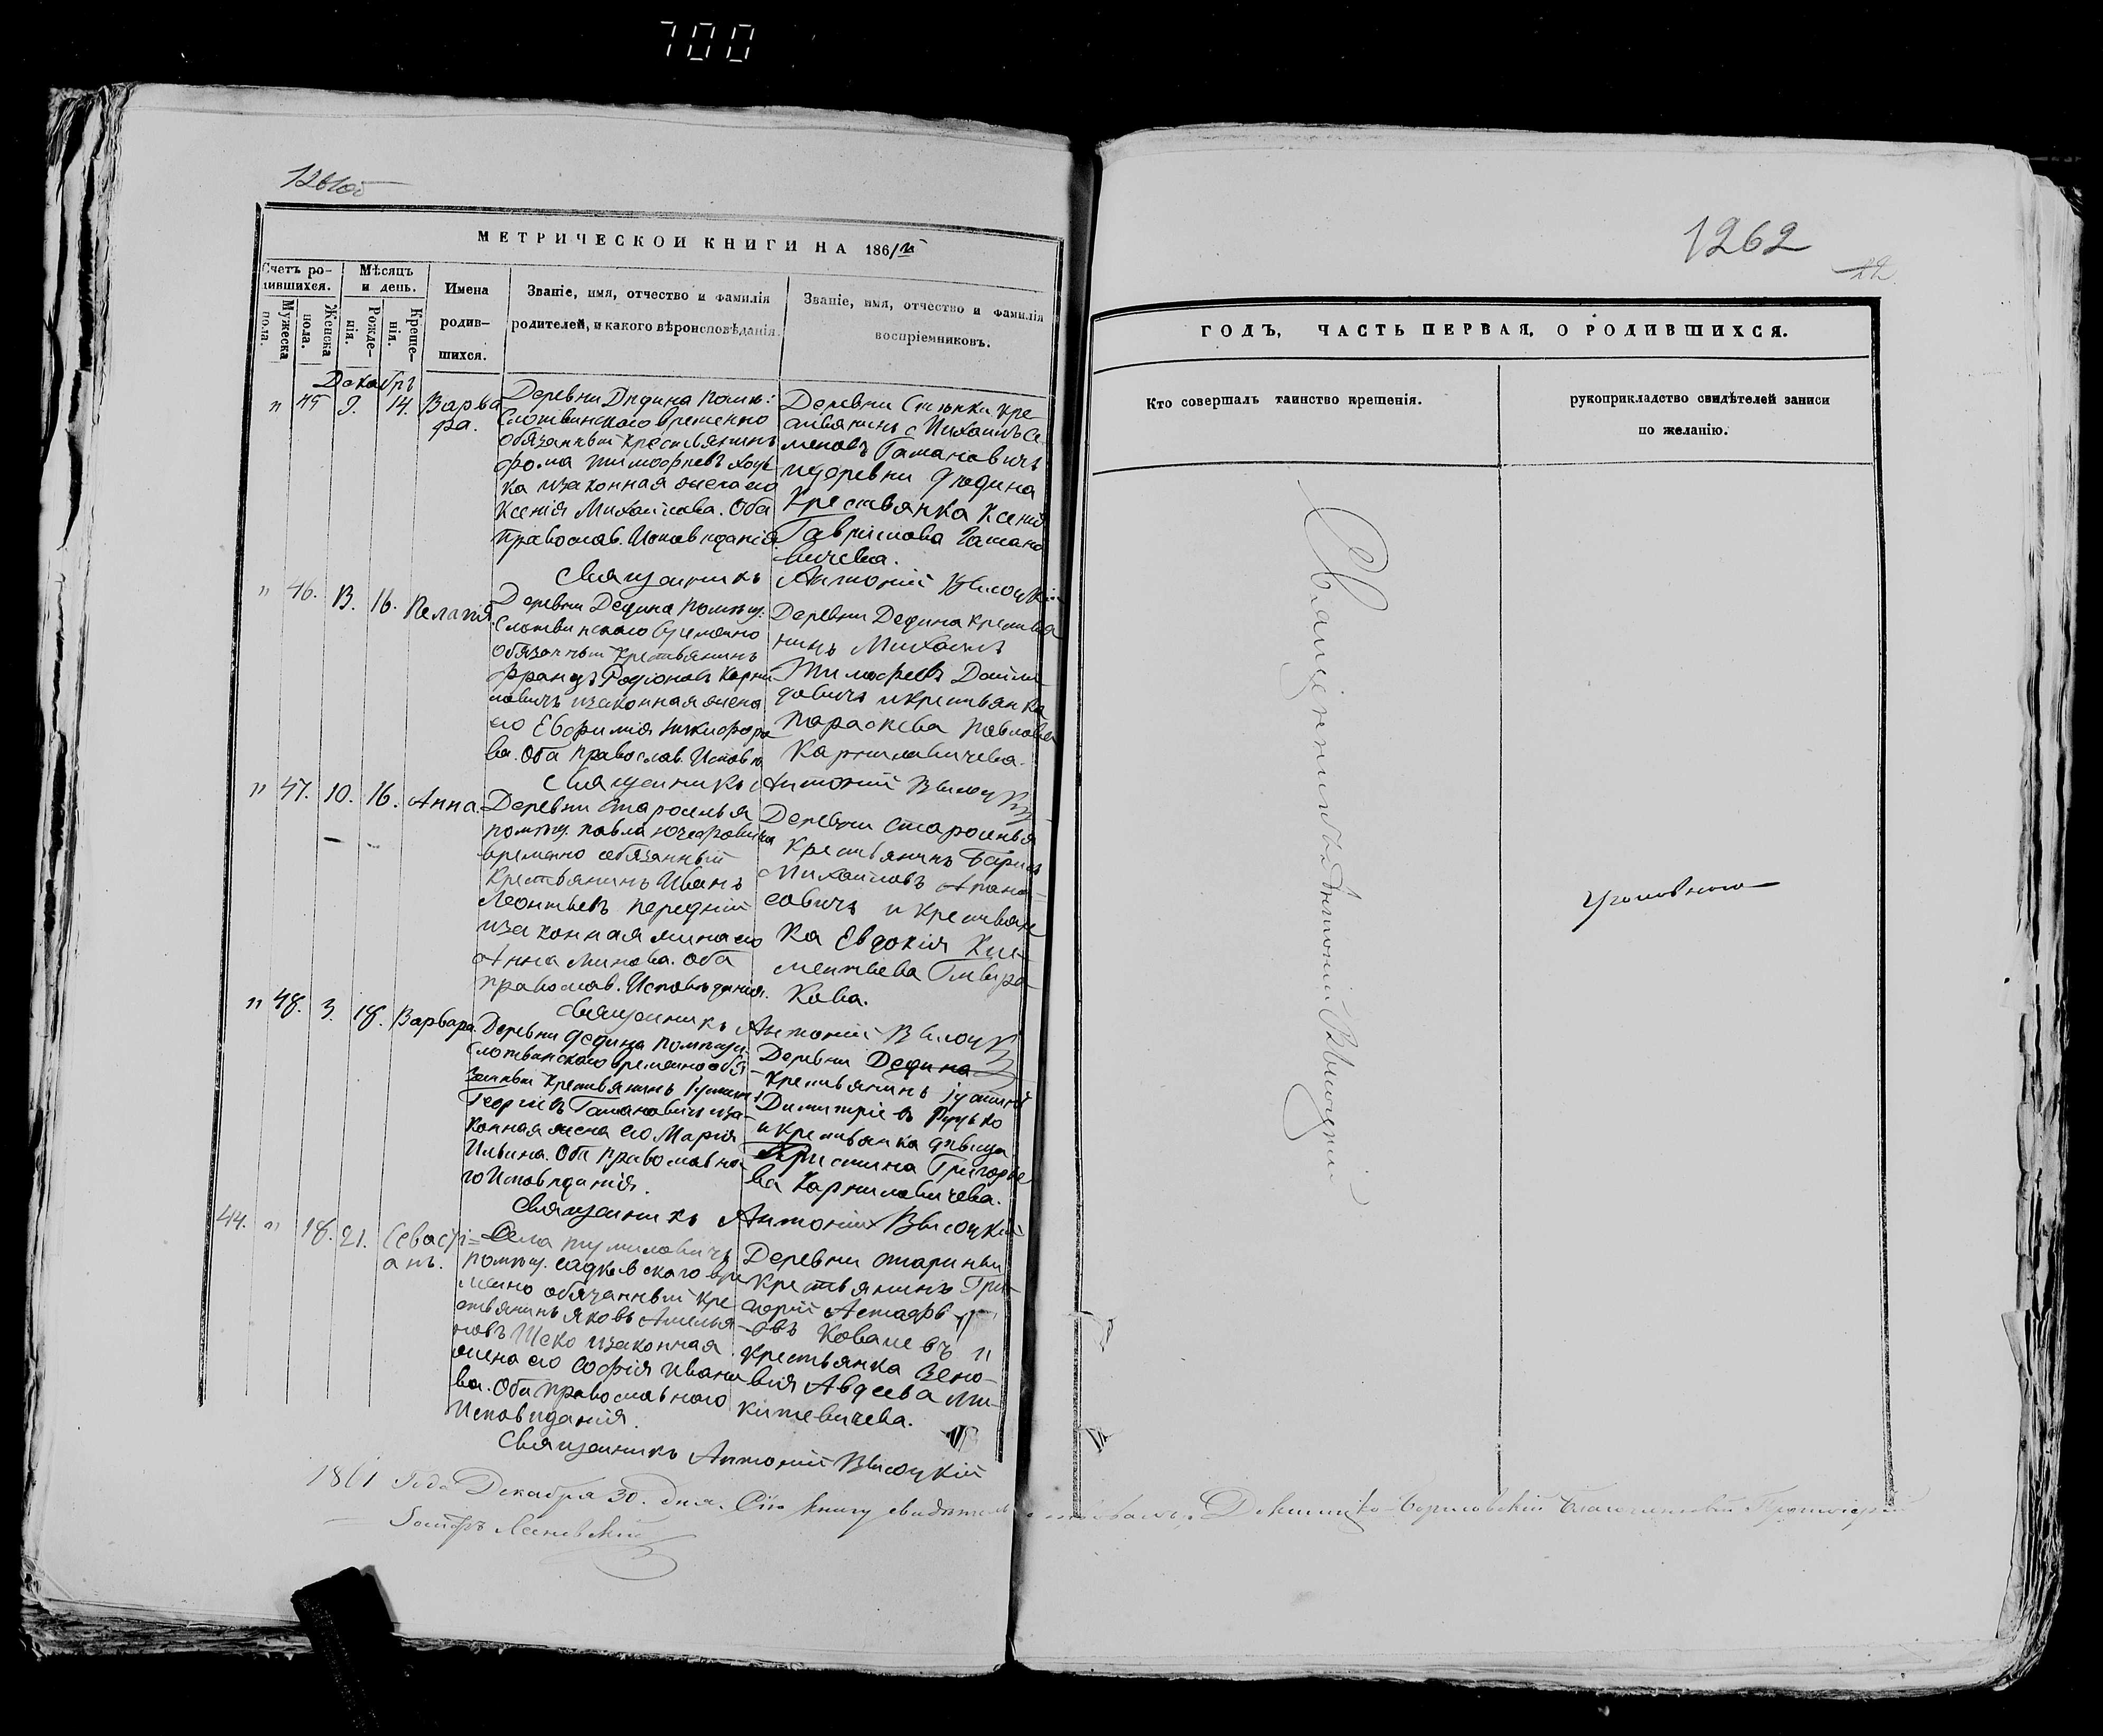 700
1261об
МЕТРИЧЕСКОИ КНИГИ НА 1861й
Счетъ ро-
дившихся.
Мужеска
пола.
Женска
пола.
Мѣсяцъ
и день.
Рожде-
нія.
Креще-
нія.
Имена
родив-
шихся.
Званіе, имя, отчество и фамилія
родителей, и какого вѣроисповѣданія.
Званіе, имя, отчество и фамилія
воспріемниковъ.
Декабрь
" 45 9. 14. Варва
ра.
Деревни Дѣдина
Слотвинскаго временно
обязанный крестьянинъ
Фома Тимофѣевъ
ка изаконная жена его
Ксенія Михайлова. Оба
Православ. Исповѣданія.
Деревни кре
стьянинъ Михаилъ Се
меновъ Гатановичъ
и деревни Дѣдина
Крестьянка Ксенія
Гаврилова Гатано
вичева.
Священникъ Антоній Высоцкій
" 46. 13. 16. Пелагія
Деревни Дедина помѣщ.
Слотвинскаго временно
обязанный крестьянинъ
Францъ Родіоновъ Карни
ловичъ изаконная жена
его Евфимія Никифоро
ва. Оба Православ. Исповѣ
Деревни Дедина крестья
нинъ Михаилъ
Тимофѣевъ
довичъ и крестьянка
Параскева Павлова
Карниловичева.
Священникъ Антоній Высоцкій
" 47. 10. 16. Анна.
Деревни Староселья
помѣщ. Павла
временно обязанный
Крестьянинъ Иванъ
Леонтьевъ Передній
изаконная жина его
Анна Минова. Оба
Православ. Исповѣданія.
Деревни Староселья
Крестьянинъ Борисъ
Михайловъ Апана-
совичъ и крестьян
ка Евдокія Кли-
ментьева
кова.
Священникъ Антоній Высоцкій
" 48. 3. 18. Варвара.
Деревни Дедина помѣщ.
Слотвинскаго временнообя
занный крестьянинъ
Георгіевъ Гатановичъ иза-
конная жена его Марія
Ильина. Оба Православна
го Исповѣданія.
Деревни Дедина
Крестьянинъ Іустинъ
Димитріевъ
и крестьянка дѣвица
Христина Григорье
ва Карниловичева.
Священникъ Антоній Высоцкій
44. " 18. 21. Севасті=
анъ.
Села Тумиловичъ
помѣщ. Садковскаго вре
менно обязанный кре
стьянинъ Яковъ Амелья
новъ изаконная
жена его Софія Ивано
ва. Оба Православнаго
Исповѣданія.
Деревни Старинки
Крестьянинъ Гри-
горій Астафь-
евъ Ковалевъ и
Крестьянка Зено-
вія Авдеева Ми-
китевичева.
Священникъ Антоній Высоцкій
1861 Года Декабря 30. дня. Сію книгу свидѣтельствовалъ, Докшицко-Борисовскій Благочинный Протоіерей
1262
22
ГОДЪ, ЧАСТЬ ПЕРВАЯ, О РОДИВШИХСЯ.
Кто совершалъ таинство крещенія.
рукоприкладство свидѣтелей записи
по желанію.
Священникъ Антоній Высоцкій